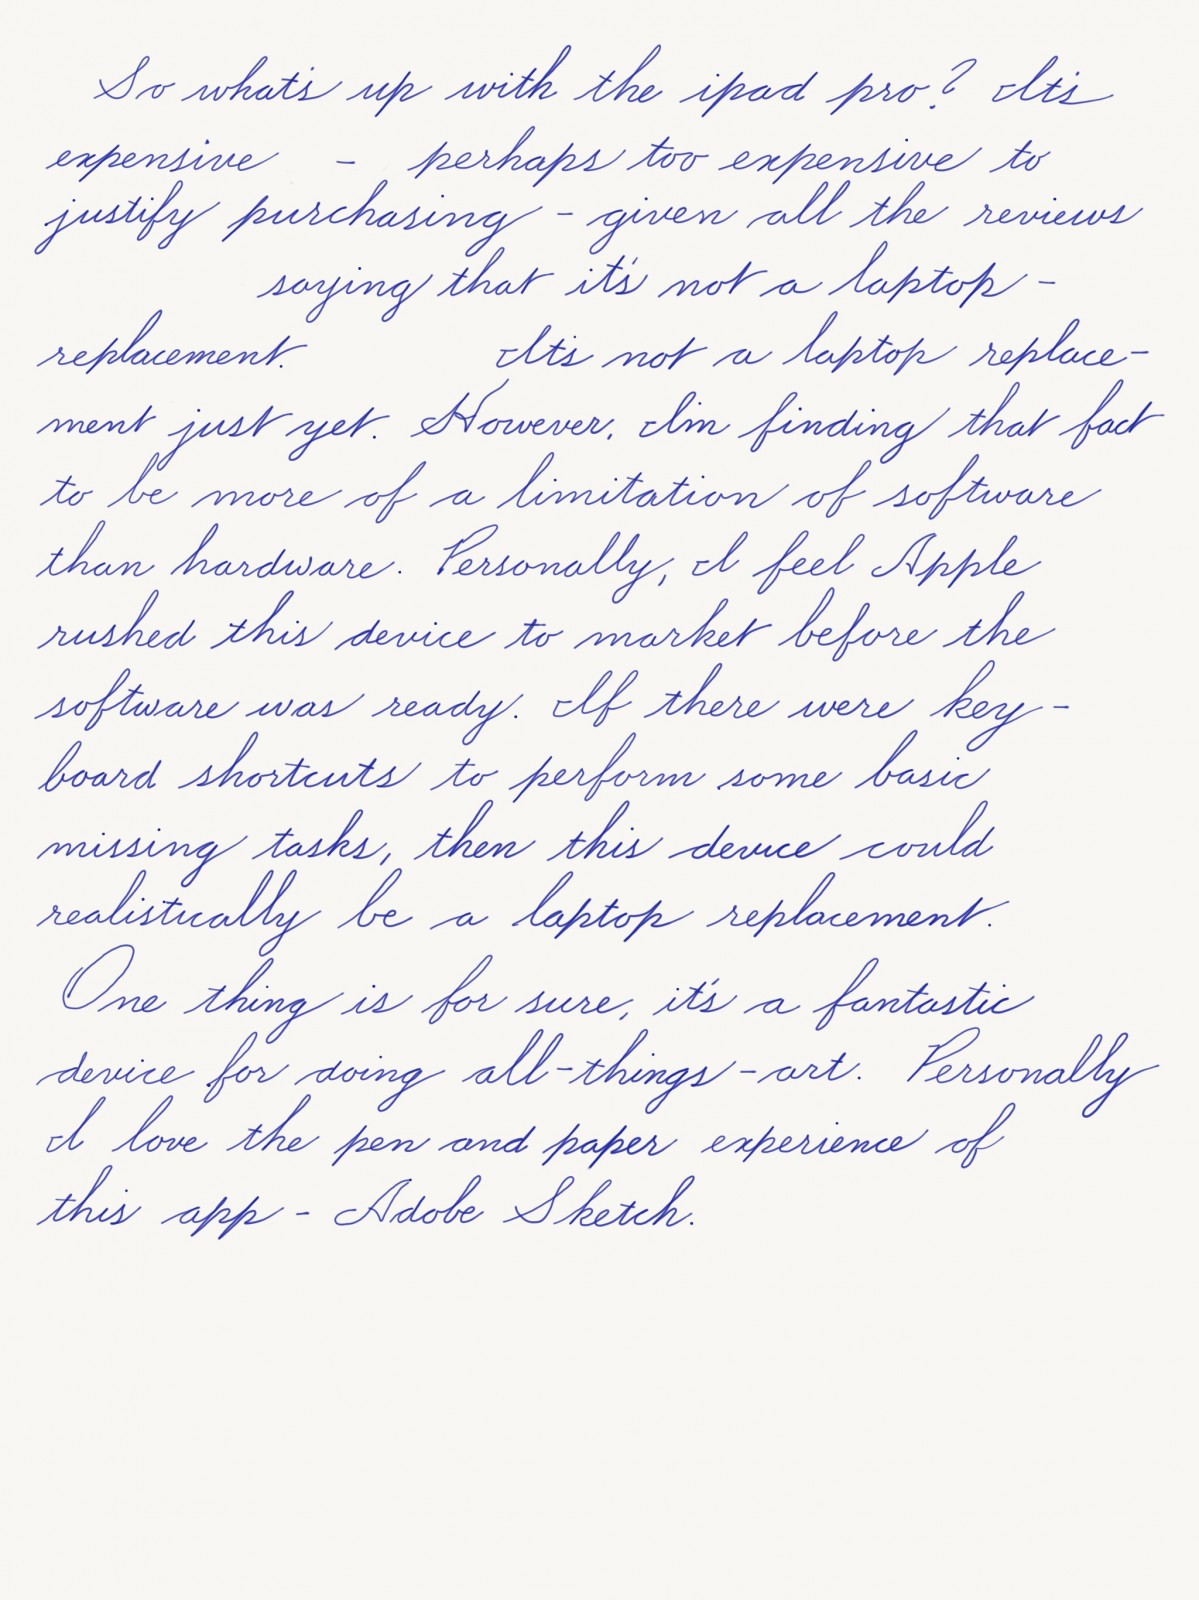 So what's up with the ipad pro? It's
expensive - perhaps too expensive to
justify purchasing - given all the reviews
saying that it's not a laptop -
replacement. It's not a laptop replace-
ment just yet. However, I'm finding that fact
to be more of a limitation of software
than hardware. Personally, I feel Apple
rushed this device to market before the
software was ready. If there were key-
board shortcuts to perform some basic
missing tasks, then this device could
realistically be a laptop replacement.
One thing is for sure, it's a fantastic
device for doing all-things-art. Personally
I love the pen and paper experience of
this app - Adobe Sketch.